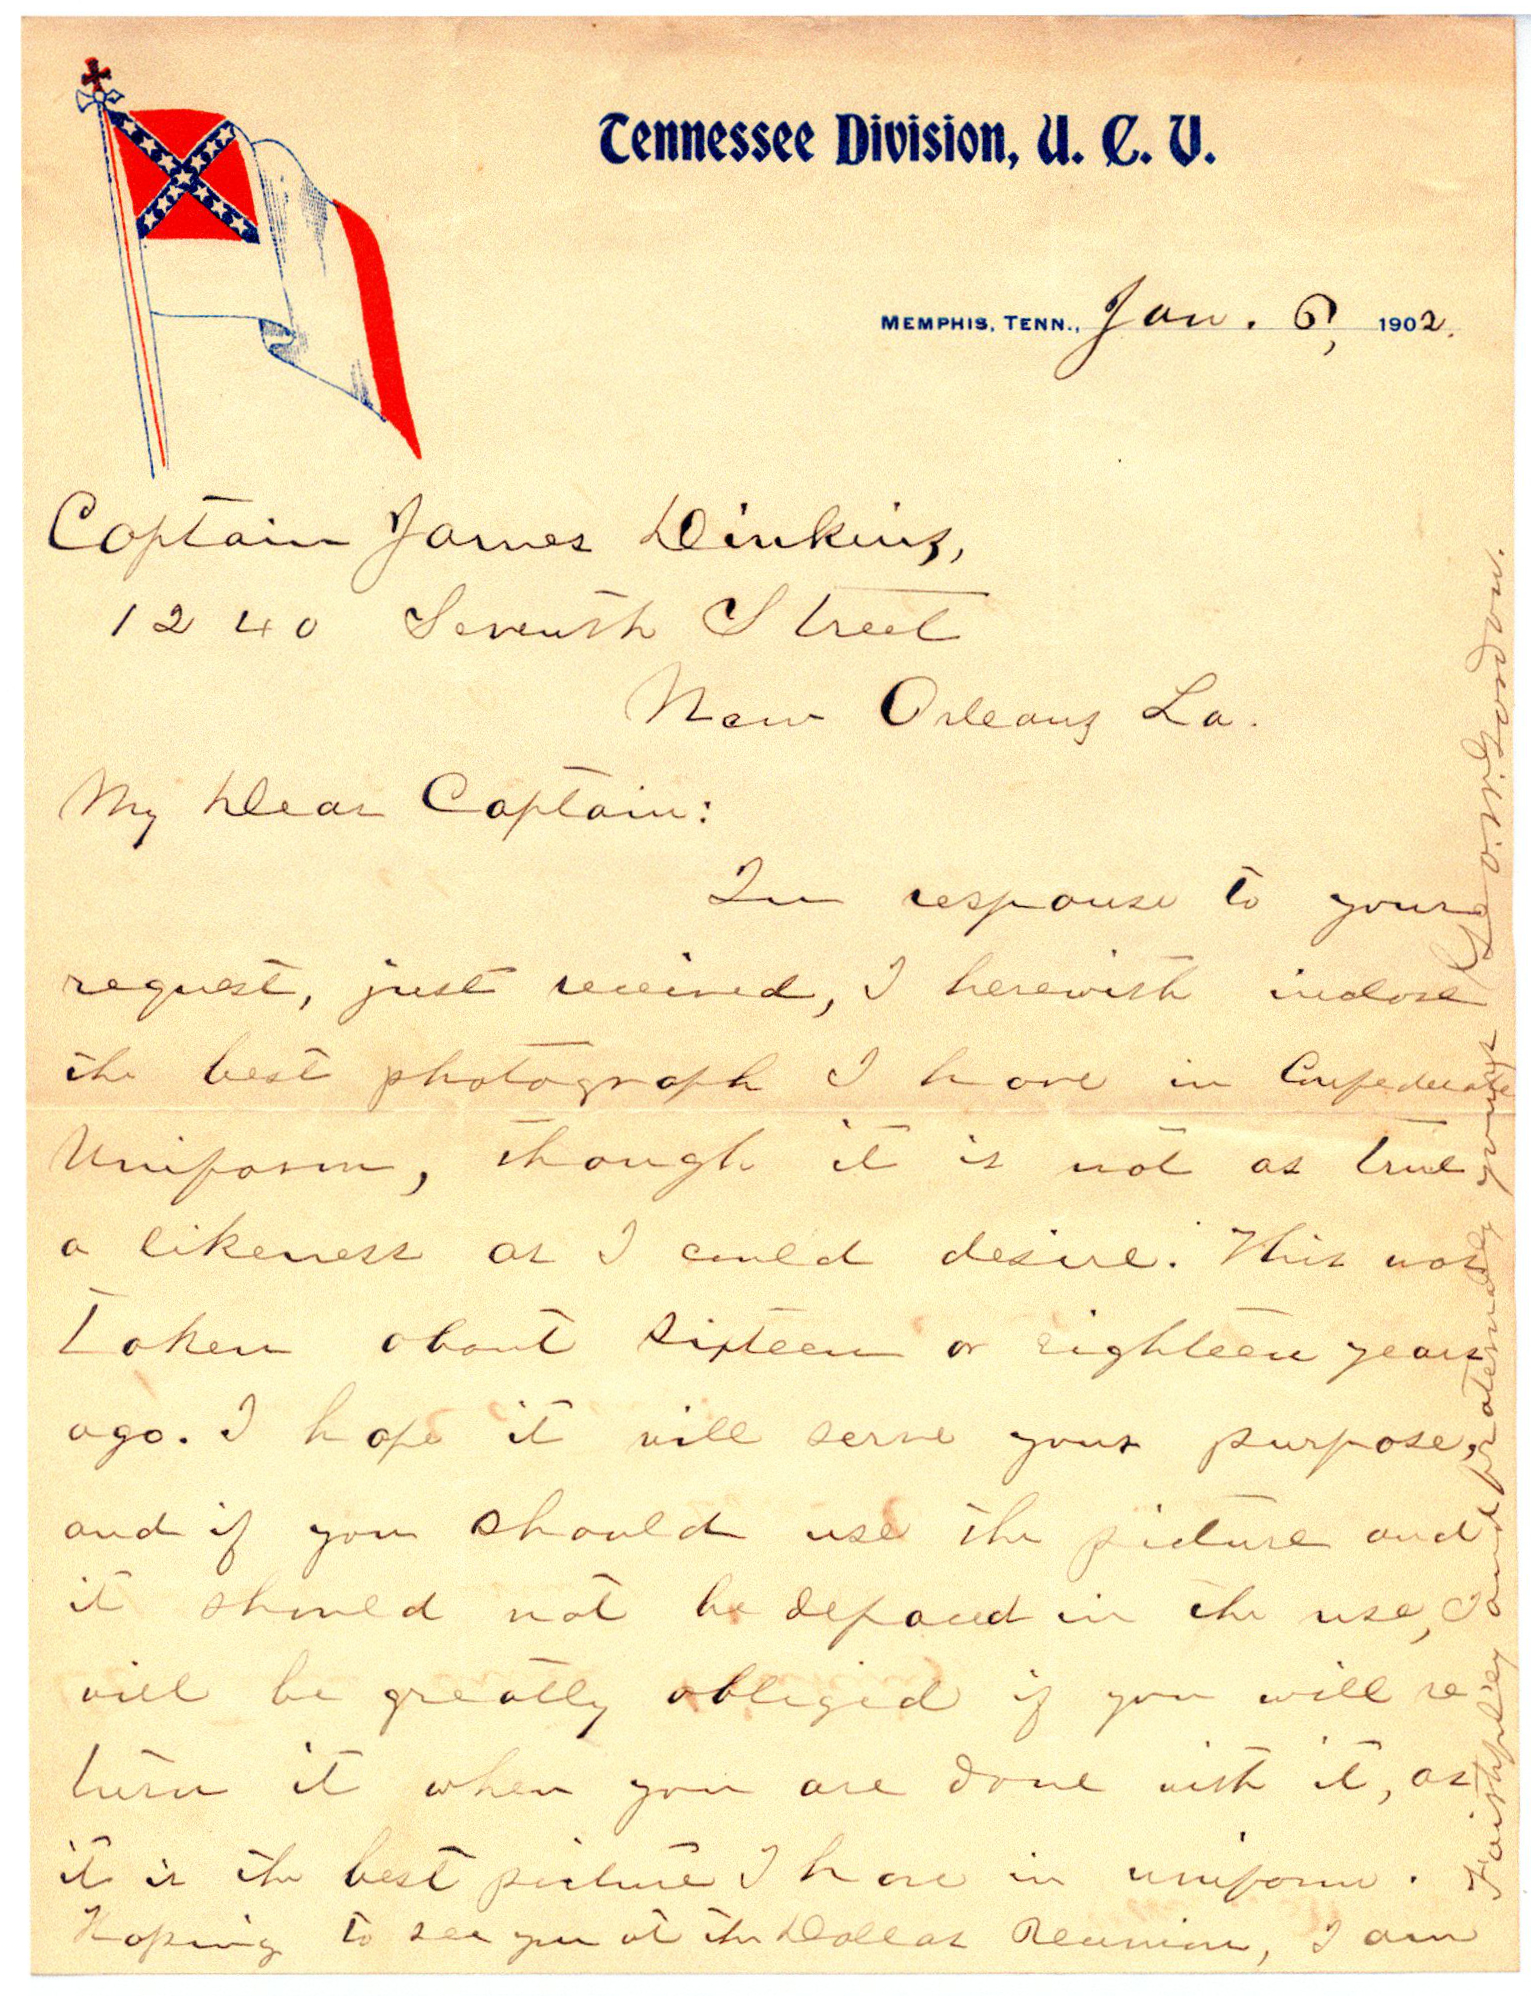 Tennessee Division, U. C. V.
MEMPHIS, TENN., Jan. 6, 1902.
Captain James Dinkins,
1240 Seventh Street
New Orleans La.
My Dear Captain:
In response to your
request, just received, I herewith inclose
the best photograph I have in Confederate
Uniform, though it is not as true
a likeness as I could desire. This was
taken about sixteen or eighteen years
ago. I hope it will serve your purpose,
and if you should use the picture and
it should not be defaced in the use, I
will be greatly obliged if you will re
turn it when you are done with it, as
it is the best picture I have in uniform.
Hoping to see you at the Dallas Reunion, I am
Faithfully and fraternally yours
Geo. W. Gordon.